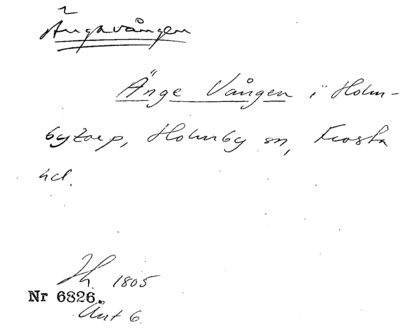 Ängavången
Änge Vången i Holm-
byzarp, Holmby sn, Frosta
hd.
Jh. 1805
Nr 6826.
Akt 6